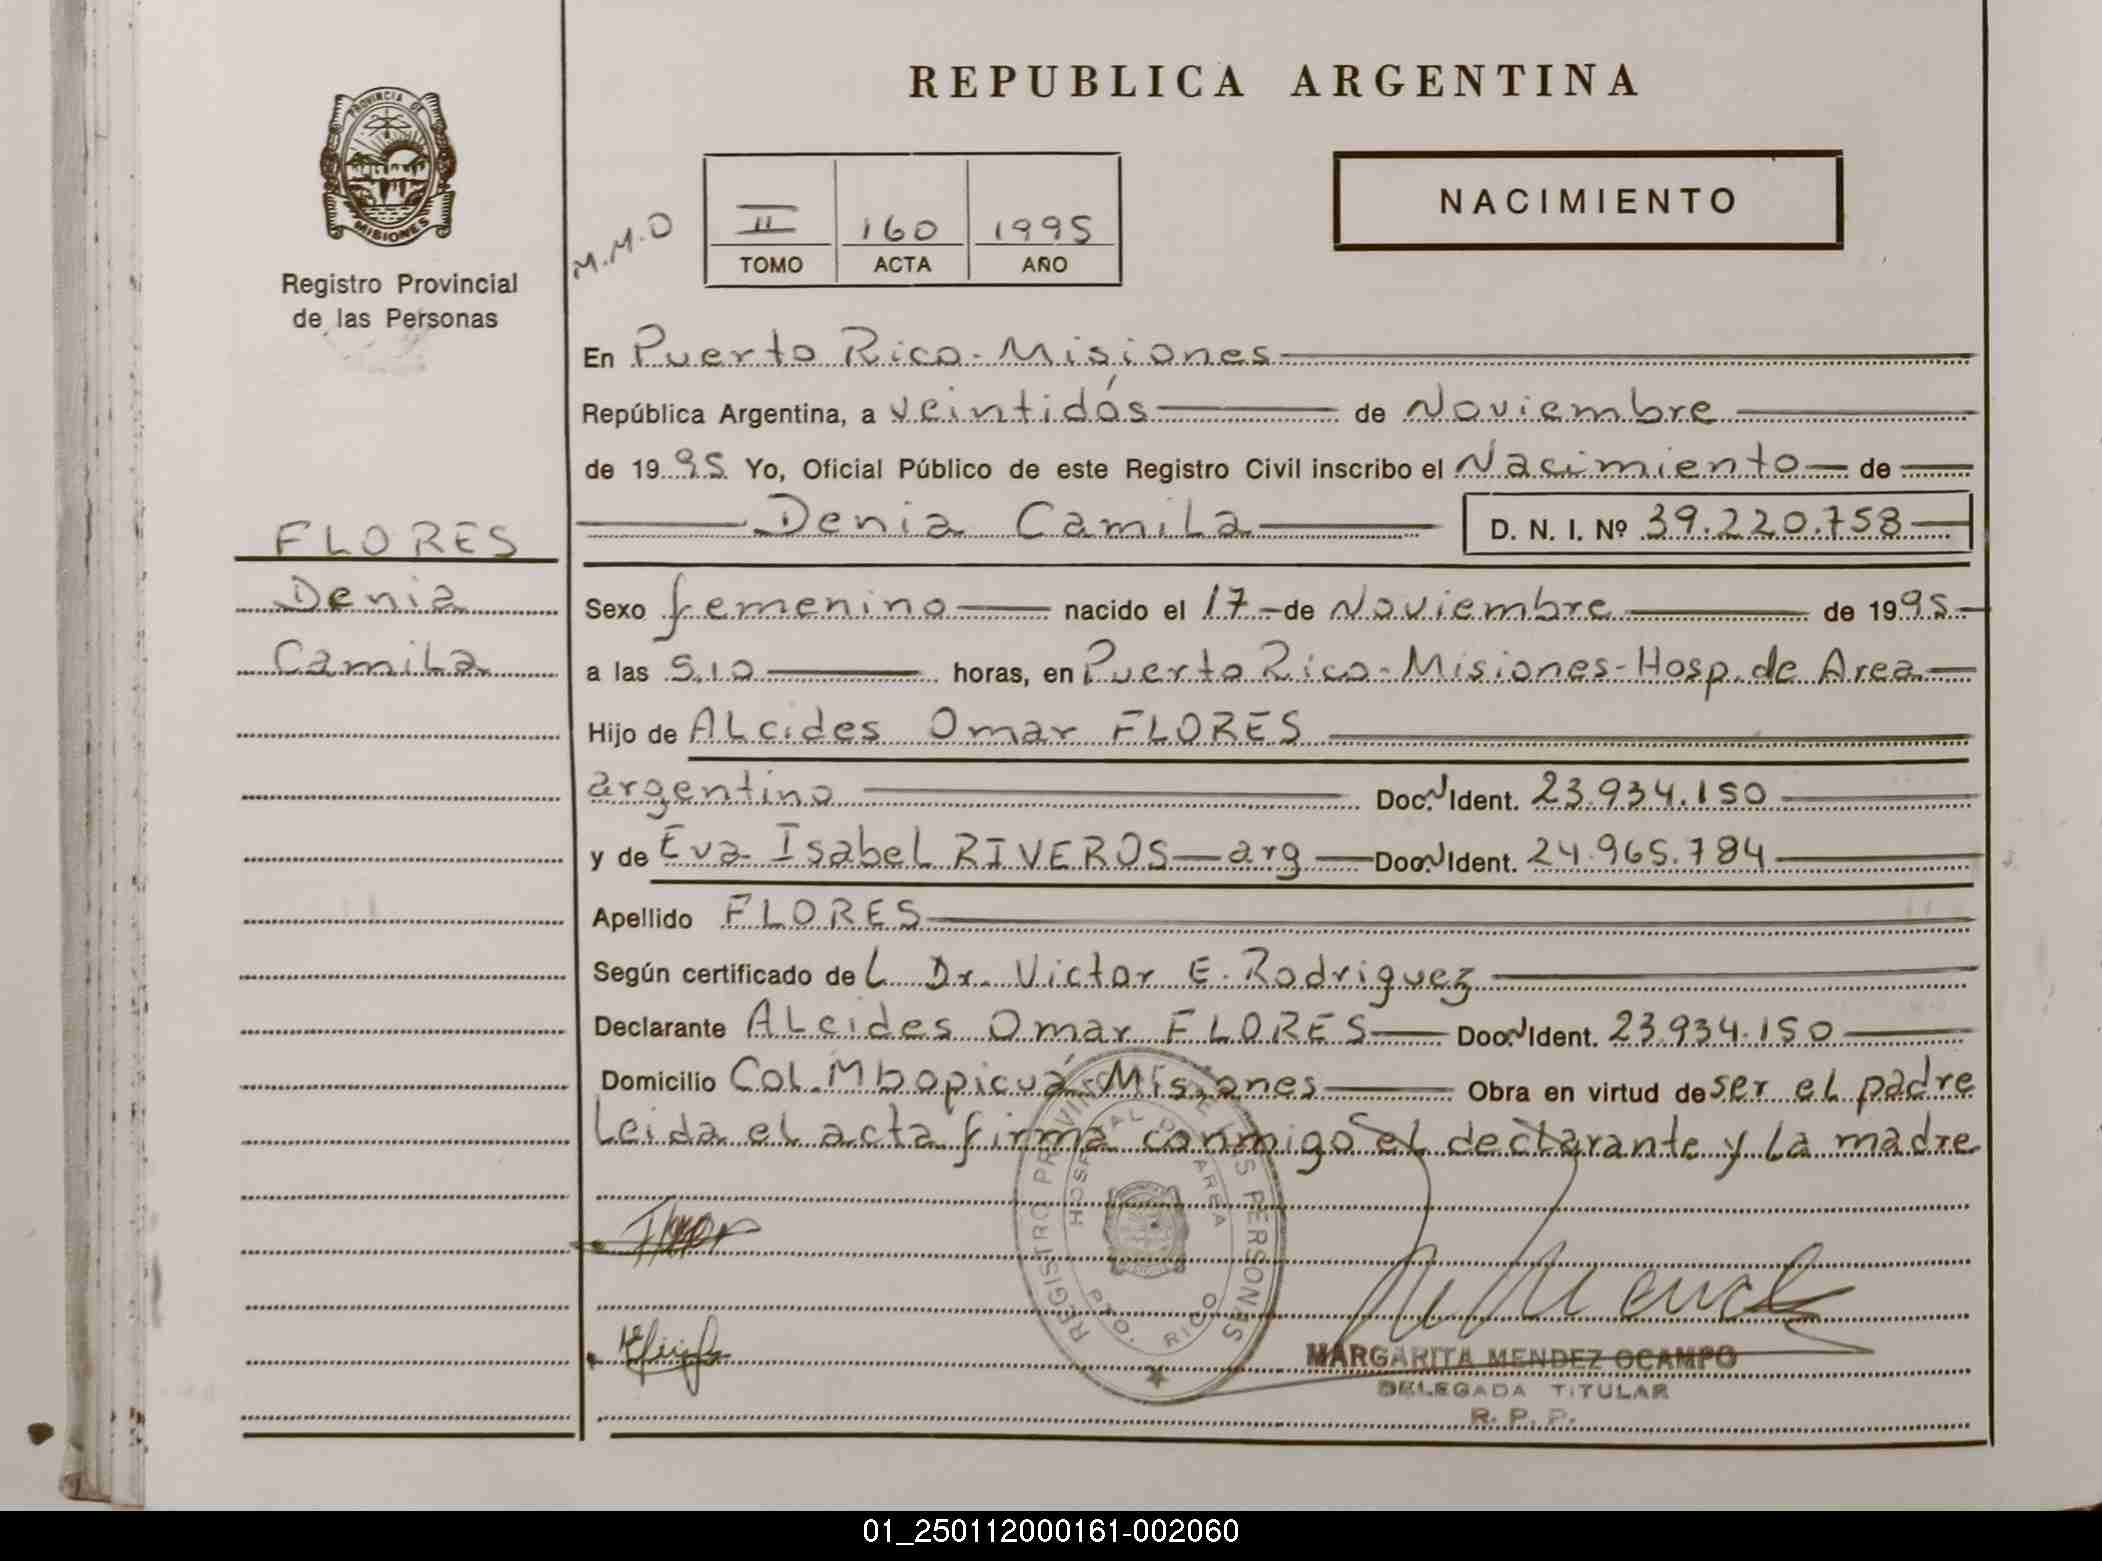 REPUBLICA ARGENTINA
PROVINCIA DE
MISIONES
Registro Provincial
de las Personas
M.M.O
II 160 1995
TOMO ACTA AÑO
NACIMIENTO
En Puerto Rico - Misiones
República Argentina, a veintidós de Noviembre
de 1995 Yo, Oficial Público de este Registro Civil inscribo el Nacimiento de
Denia Camila D. N. I. Nº 39.220.758
FLORES
Denia
Camila
Sexo femenino nacido el 17 de Noviembre de 1995
a las 5.10 horas, en Puerto Rico - Misiones - Hosp. de Area
Hijo de ALcides Omar FLORES
argentino Doc. N Ident. 23.934.150
y de Eva IsabeL RIVEROS arg Doc. N Ident. 24.965.784
Apellido FLORES
Según certificado deL Dr. Victor E. Rodriguez
Declarante ALcides Omar FLORES Doc. N Ident. 23.934.150
Domicilio CoL. Mbopicuá Misiones Obra en virtud de ser eL padre
Leida eL acta firma conmigo eL decLarante y La madre
REGISTRO PROVINCIAL DE LAS PERSONAS
HOSPITAL DE AREA
PTO. RICO
MARGARITA MENDEZ OCAMPO
DELEGADA TITULAR
R. P. P.
01_250112000161-002060